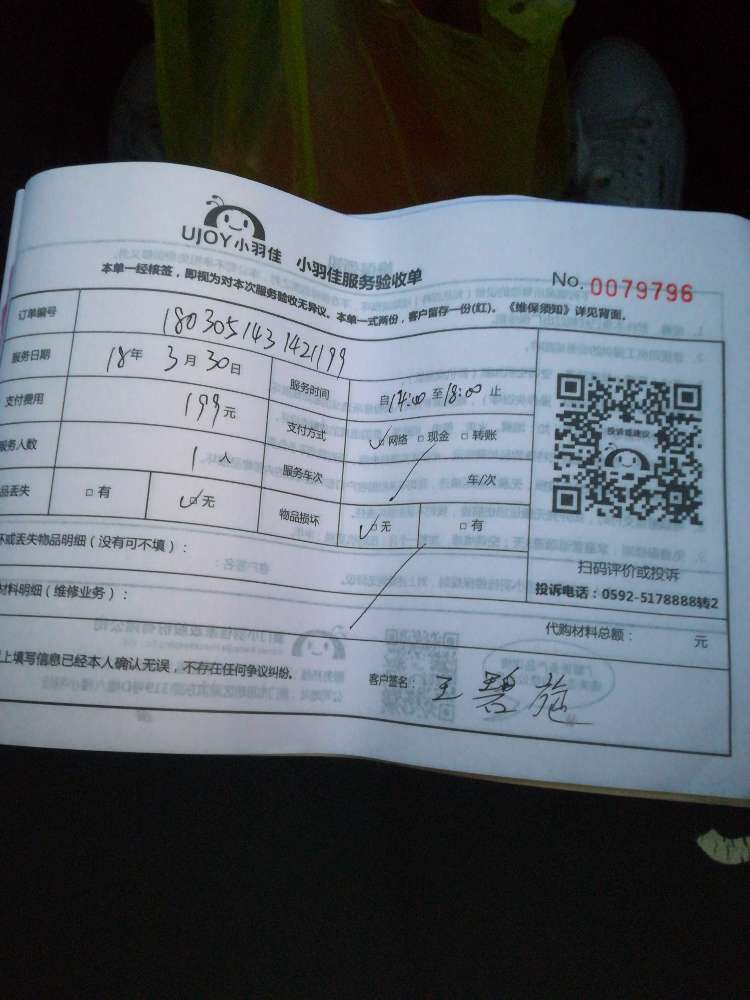 UJOY小羽佳 小羽佳服务验收单
本单一经核签，即视为对本次服务验收无异议。本单一式两份，客户留存一份(红)。《维保须知》详见背面。
No. 0079796
订单编号 1803051431421199
服务日期 18年 3月 30日 服务时间 自14:00至18:00止
支付费用 199元 支付方式 ☑网络 □现金 □转账
服务人数 1人 服务车次 车/次
品丢失 □有 ☑无 物品损坏 ☑无 □有
坏或丢失物品明细（没有可不填）：
材料明细（维修业务）：
代购材料总额： 元
上填写信息已经本人确认无误，不存在任何争议纠纷。
客户签名：王碧施
投诉或建议
扫码评价或投诉
投诉电话：0592-5178888转2